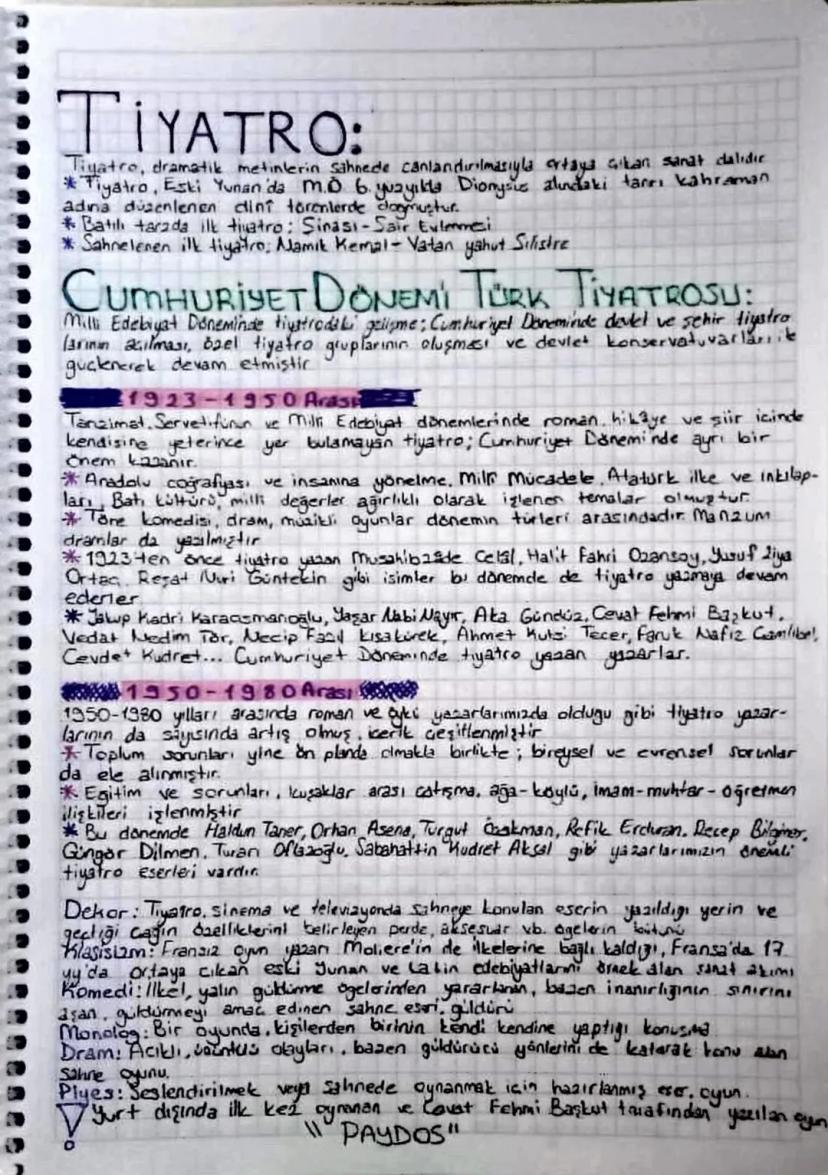 TİYATRO:
Tiyatro, dramatik metinlerin sahnede canlandırılmasıyla ortaya çıkan sanat dalıdır
* Tiyatro, Eski Yunan'da M.Ö 6. yüzyılda Dionysus alındaki tanrı kahraman
adına düzenlenen dinî törenlerde doğmuştur.
* Batılı tarzda ilk tiyatro: Şinasi-Şair Evlenmesi
* Sahnelenen ilk tiyatro; Namık Kemal- Vatan yahut Silistre
CUMHURİYET DÖNEMİ TÜRK TİYATROSU:
Milli Edebiyat Döneminde tiyatrodaki gelişme; Cumhuriyet Döneminde devlet ve şehir tiyatro
larının açılması, özel tiyatro gruplarının oluşması ve devlet konservatuvarları ile
güçlenerek devam etmiştir
1923-1950 Arası
Tanzimat, Servetifünun ve Milli Edebiyat dönemlerinde roman, hikâye ve şiir içinde
kendisine yeterince yer bulamayan tiyatro; Cumhuriyet Dönemi'nde ayrı bir
önem kazanır.
* Anadolu coğrafyası ve insanına yönelme, Milli Mücadele, Atatürk ilke ve inkılap-
ları, Batı kültürü, milli değerler ağırlıklı olarak işlenen temalar olmuştur.
* Töre komedisi, dram, müzikli oyunlar dönemin türleri arasındadır. Manzum
dramlar da yazılmıştır
* 1923'ten önce tiyatro yazan Musahibzâde Celâl, Halit Fahri Ozansoy, Yusuf Ziya
Ortaç, Reşat Nuri Güntekin gibi isimler bu dönemde de tiyatro yazmaya devam
ederler
* Yakup Kadri Karaosmanoğlu, Yaşar Nabi Nayır, Aka Gündüz, Cevat Fehmi Başkut,
Vedat Nedim Tör, Necip Fazıl Kısakürek, Ahmet Kutsi Tecer, Faruk Nafiz Çamlıbel,
Cevdet Kudret... Cumhuriyet Döneminde tiyatro yazan yazarlar.
1950-1980 Arası
1950-1980 yılları arasında roman ve öykü yazarlarımızda olduğu gibi tiyatro yazar-
larının da sayısında artış olmuş, içerik çeşitlenmiştir
* Toplum sorunları yine ön planda olmakla birlikte; bireysel ve evrensel sorunlar
da ele alınmıştır.
* Eğitim ve sorunları, kuşaklar arası çatışma, ağa-köylü, imam-muhtar-öğretmen
ilişkileri işlenmiştir
* Bu dönemde Haldun Taner, Orhan Asena, Turgut Özakman, Refik Erduran, Recep Bilginer,
Güngör Dilmen, Turan Oflazoğlu, Sabahattin Kudret Aksal gibi yazarlarımızın önemli
tiyatro eserleri vardır.
Dekor: Tiyatro, sinema ve televizyonda sahneye konulan eserin yazıldığı yerin ve
geçtiği çağın özelliklerini belirleyen perde, aksesuar vb. ögelerin bütünü
Klasisizm: Fransız oyun yazarı Moliere'in de ilkelerine bağlı kaldığı, Fransa'da 17.
yy'da ortaya çıkan eski Yunan ve Latin edebiyatlarını örnek alan sanat akımı
Komedi: İlkel, yalın güldürme ögelerinden yararlanan, bazen inanırlığının sınırını
aşan, güldürmeyi amaç edinen sahne eseri, güldürü
Monolog: Bir oyunda, kişilerden birinin kendi kendine yaptığı konuşma
Dram: Acıklı, üzüntülü olayları, bazen güldürücü yönlerini de katarak konu alan
sahne oyunu.
Piyes: Seslendirilmek veya sahnede oynanmak için hazırlanmış eser, oyun.
! Yurt dışında ilk kez oynanan ve Cevat Fehmi Başkut tarafından yazılan oyun
"PAYDOS"